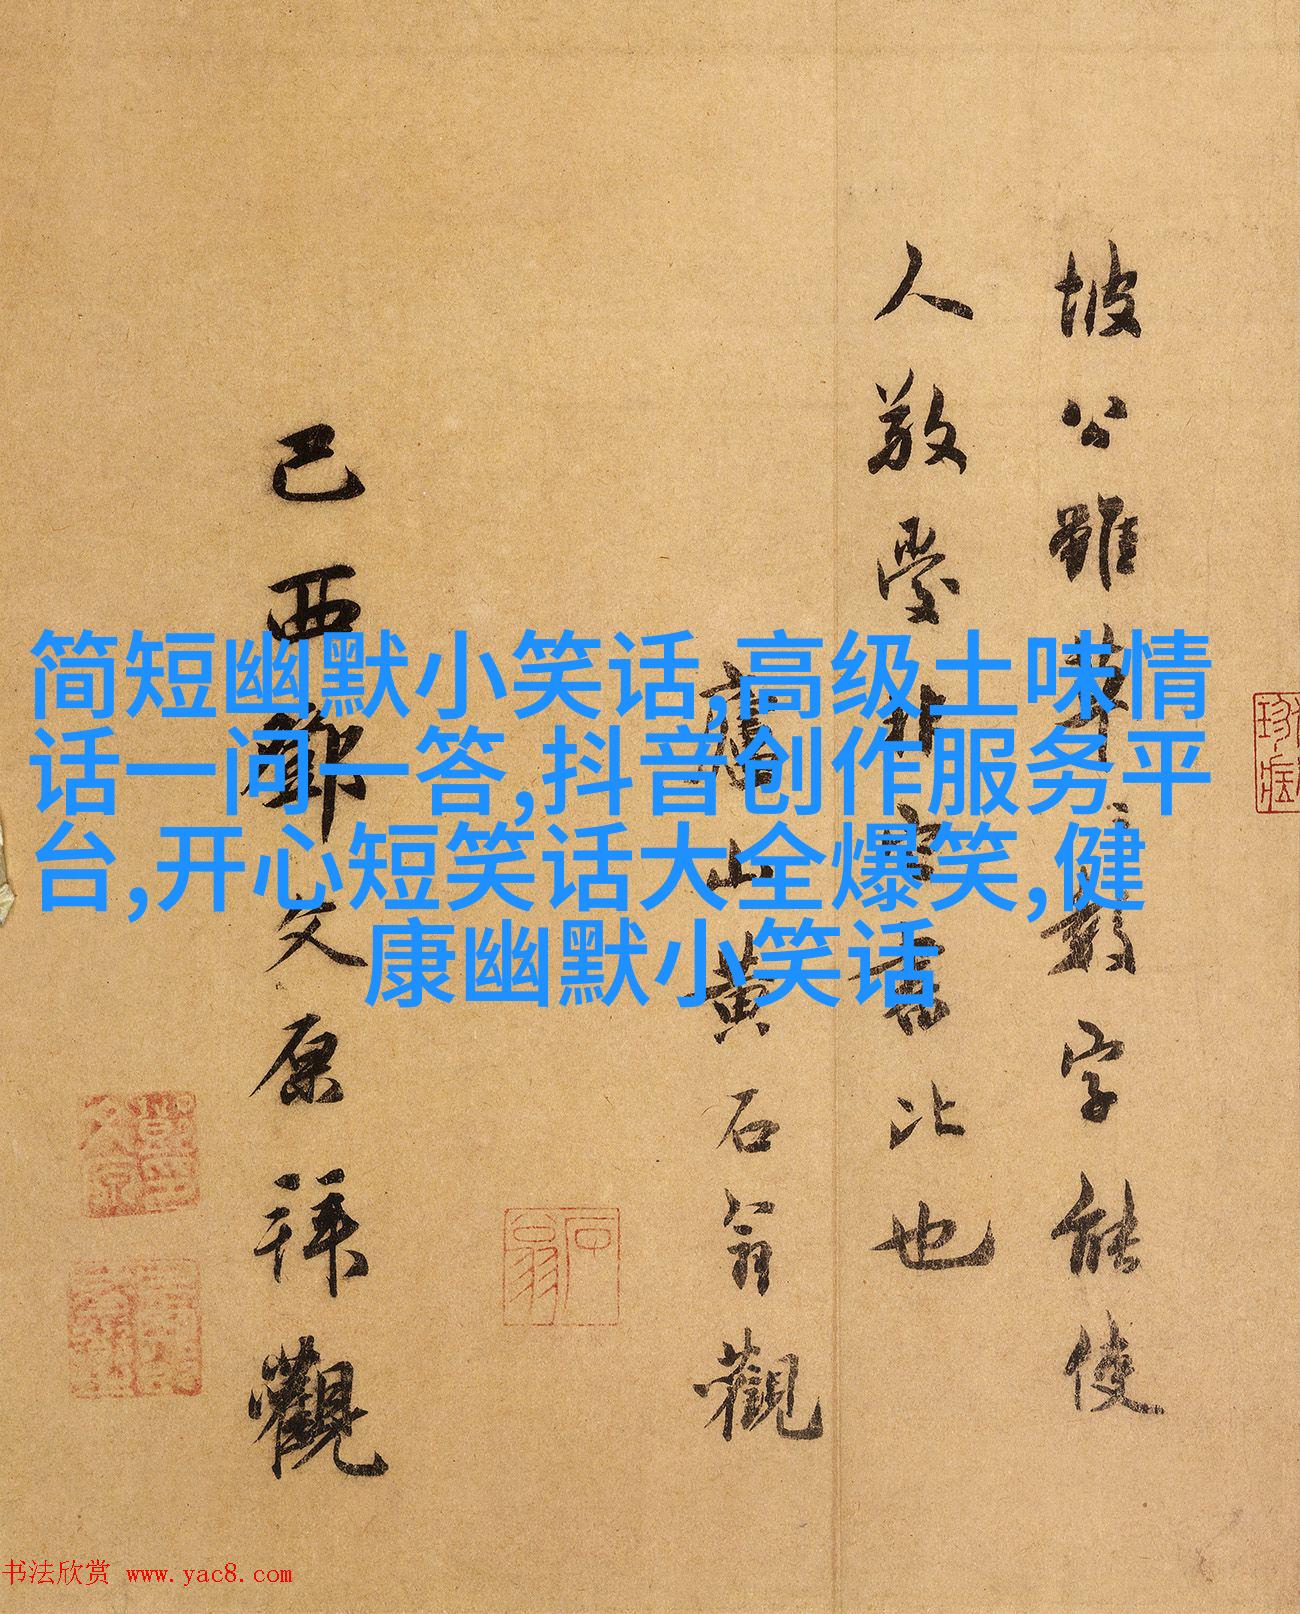 坡公雖草數字能使
人敬愛非宝書比也
山黄石翁觀
已酉鄧文原拜觀
简短幽默小笑话,高级土味情
话一问一答,抖音创作服务平
台,开心短笑话大全爆笑,健
康幽默小笑话
石翁
书法欣赏 www.yac8.com